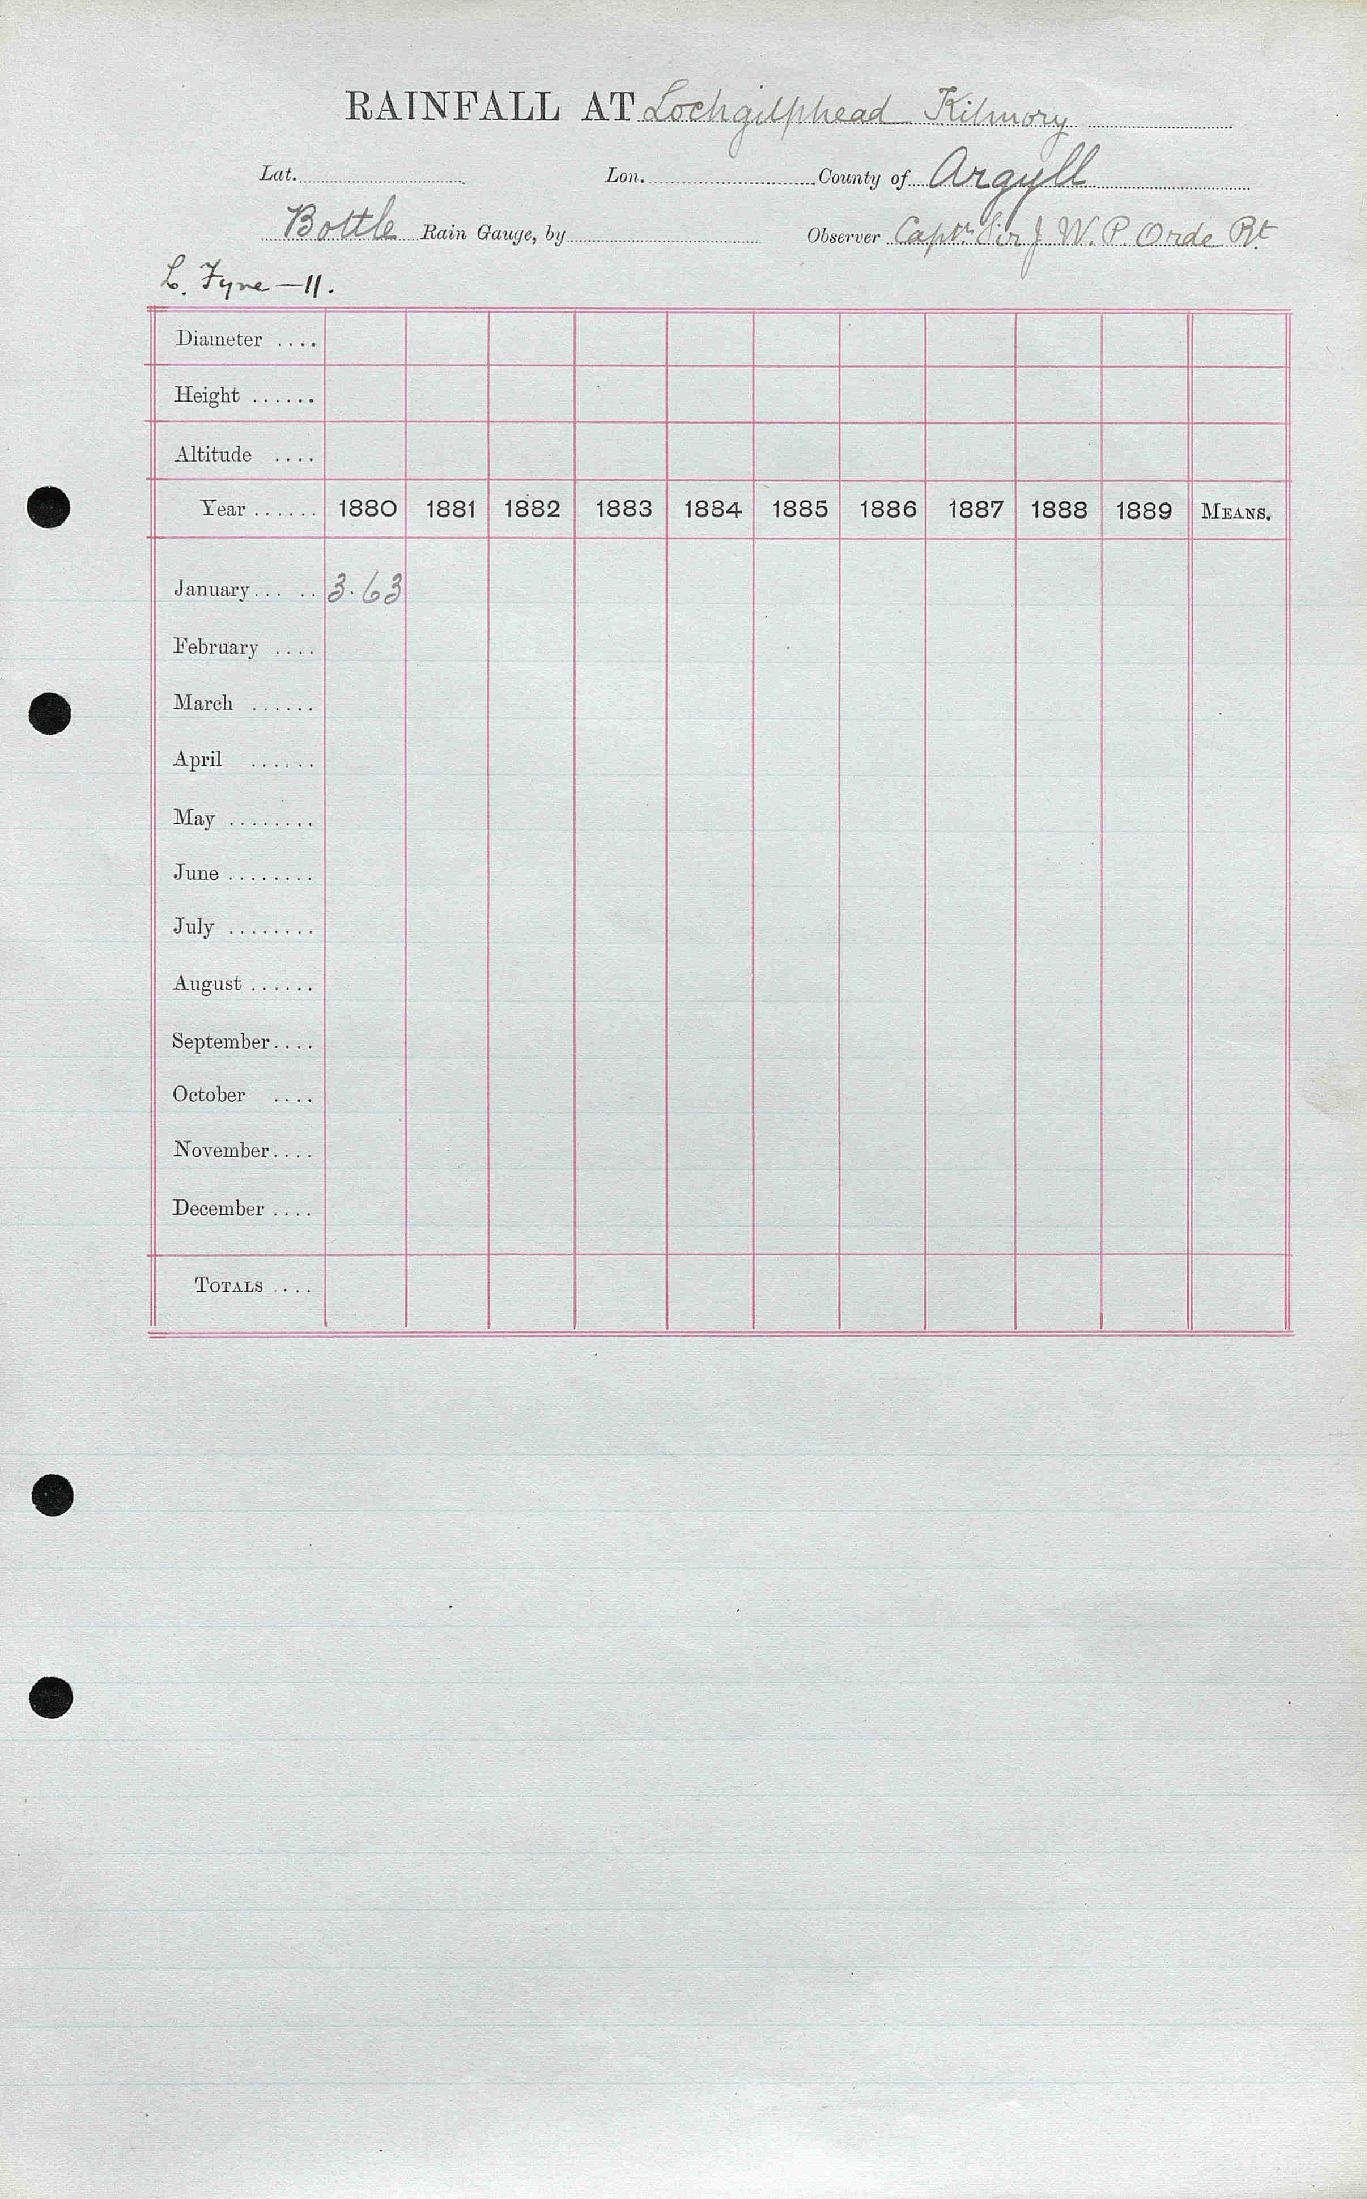 RAINFALL AT Lochgilphead Kilmory
Lat. Lon. County of Argyll
Bottle Rain Gauge, by Observer Captn Sir J W. P. Orde Bt
L. Fyne — 11.
Diameter ....
Height ......
Altitude ....
Year ...... 1880 1881 1882 1883 1884 1885 1886 1887 1888 1889 MEANS.
January... .. 3.63
February ....
March ......
April ......
May ........
June ........
July ........
August ......
September....
October ....
November....
December ....
TOTALS ....